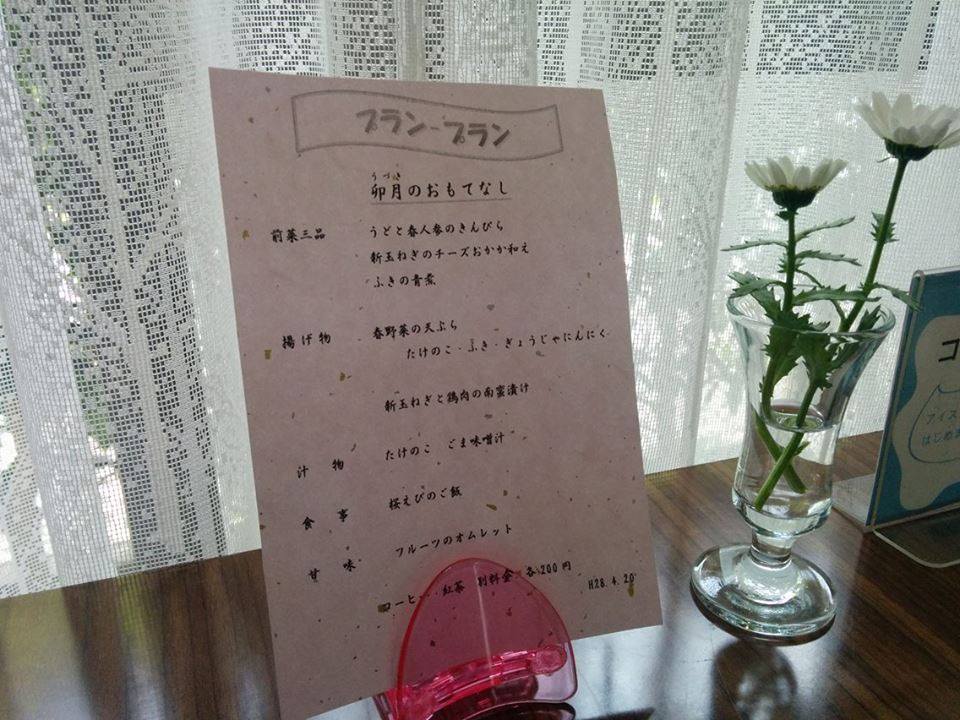 プラン-プラン
うづき
卯月のおもてなし
前菜三品 うどと春人参のきんぴら
新玉ねぎのチーズおかか和え
ふきの青煮
揚げ物 春野菜の天ぷら
たけのこ・ふき・ぎょうじゃにんにく
新玉ねぎと鶏肉の南蛮漬け
汁物 たけのこ ごま味噌汁
食事 桜えびのご飯
甘味 フルーツのオムレット
コーヒー・紅茶 別料金 各200円
H28.4.20
コ
アイス
はじめま